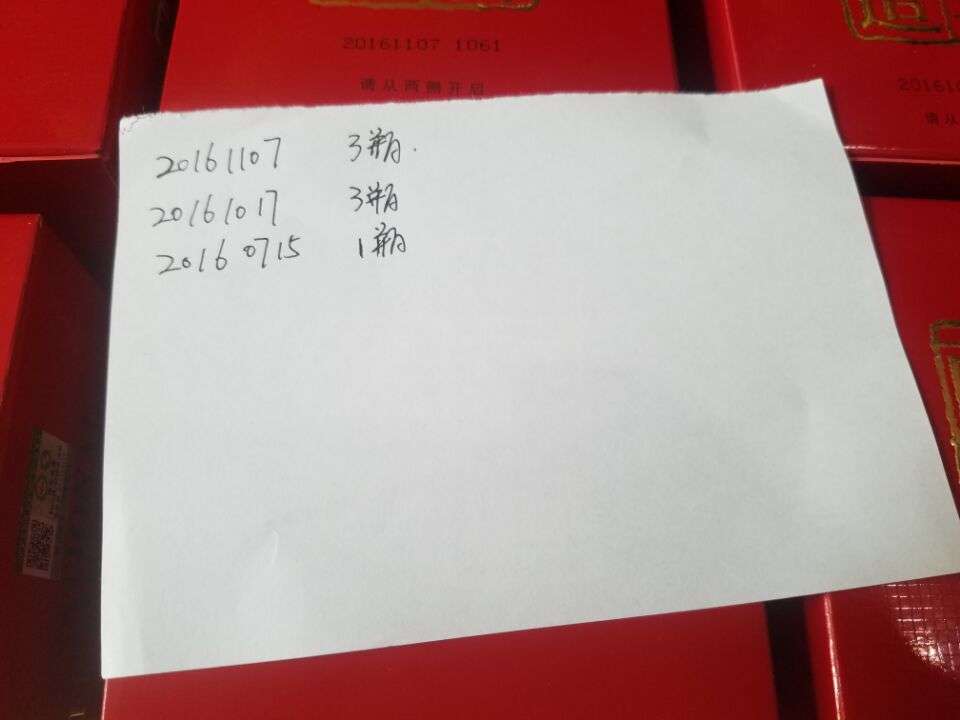 造
20161107 1061
请从两侧开启
201610
请从
20161107 3瓶.
20161017 3瓶
20160715 1瓶